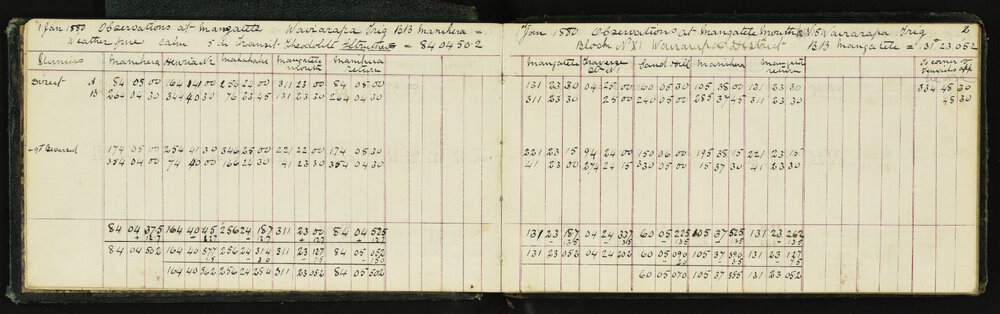 1 Jan 1880 Observations at Mangatete Wairarapa Trig BB Manihera =
Weather fine Calm 5 in Transit Theodolite = 84 04 50.2
Verniers Manihera Mangatete Mouth Manihera return
Direct A 84 05 00 164 41 00 256 24 00 311 23 00 84 05 00
B 264 04 30 344 40 30 76 23 45 131 23 30 264 04 30
Reversed 174 05 00 254 41 30 346 25 00 221 22 00 174 05 30
354 04 00 74 40 00 166 24 30 41 23 30 354 04 30
84 04 37.5 164 40 45 256 24 18.7 311 23 00 84 04 52.5
84 04 50.2 164 40 57.7 256 24 31.4 311 23 12.7 84 05 05.2
164 40 56.2 256 24 28.4 311 23 05.2 84 04 50.2
Jan 1880 Observations at Mangatete Mouth Wairarapa Trig 2
Block No XI Wairarapa District BB Mangatete = 131 23 05.2
Mangatete Traverse Stn No 1 Sand Hill Manihera Mangatete return
131 23 30 04 25 00 60 05 30 105 38 00 131 23 30 334 48 30
311 23 30 25 00 240 05 00 285 37 45 311 23 30 48 30
221 23 15 94 24 00 150 06 00 195 38 15 221 23 15
41 23 00 274 24 15 330 05 00 15 37 30 41 23 30
131 23 18.7 04 24 33.7 60 05 22.5 105 37 52.5 131 23 26.2
131 23 05.2 04 24 20.2 60 05 09.0 105 37 39.0 131 23 12.7
60 05 07.0 105 37 35.5 131 23 05.2